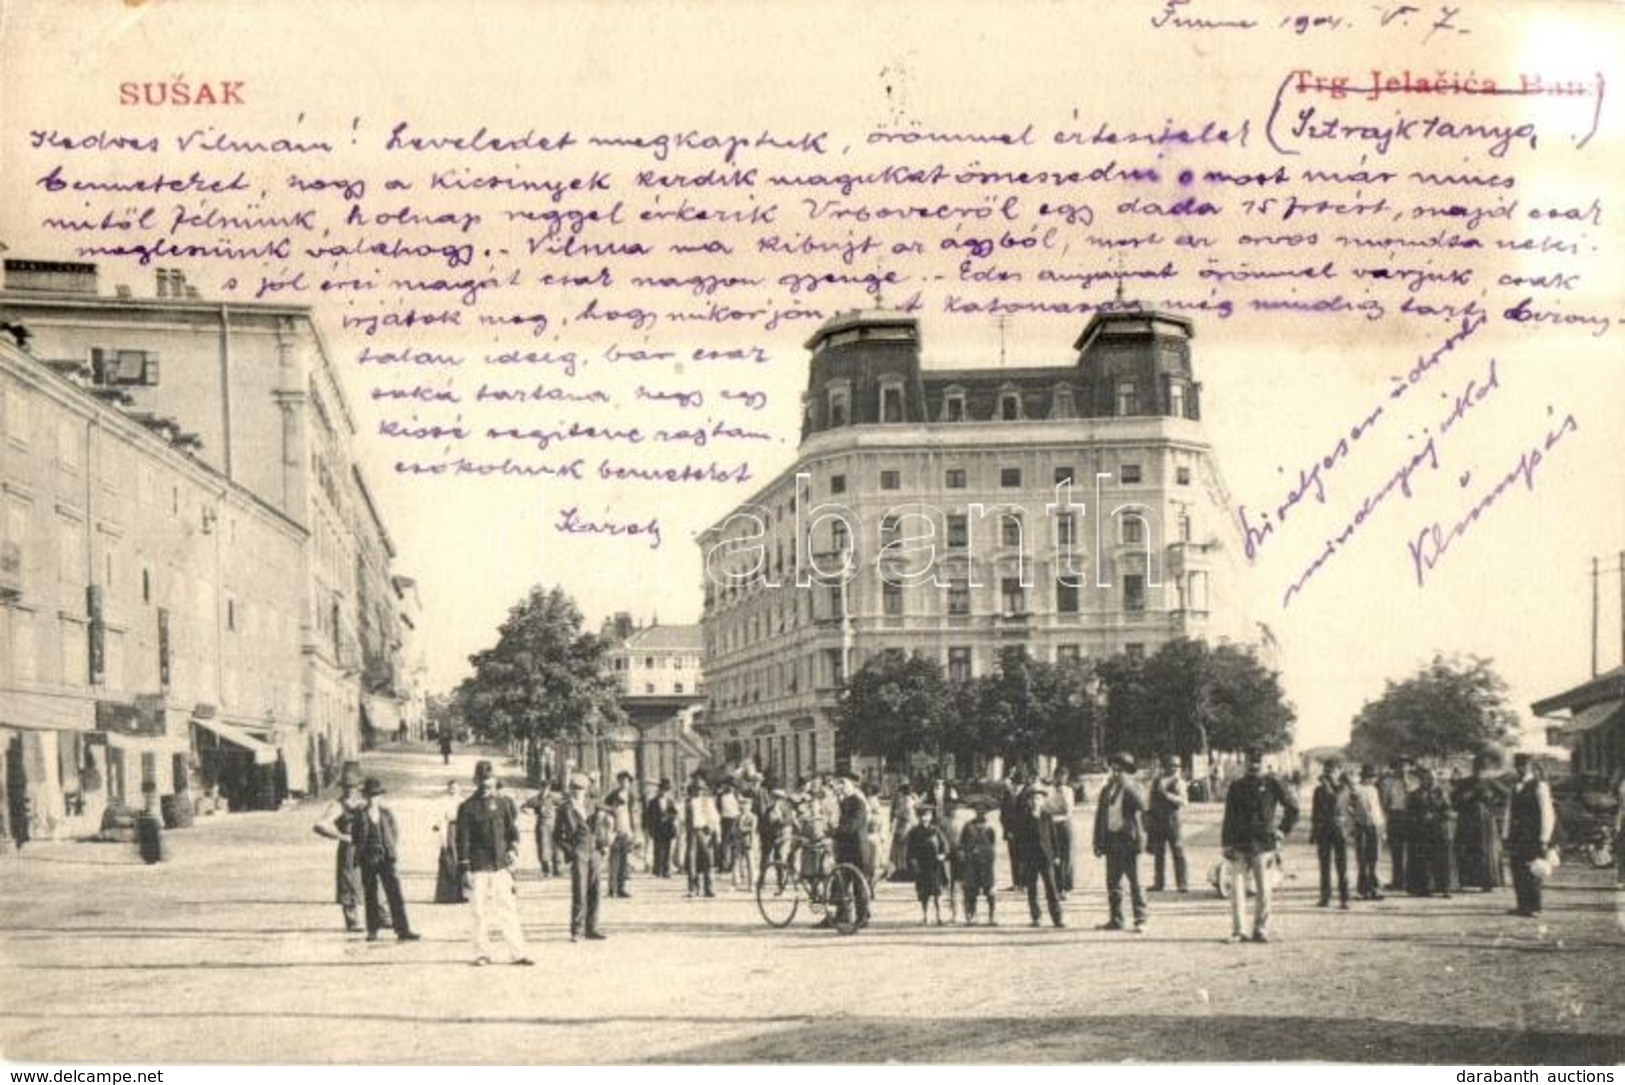 Fiume 1904. V. 7.
SUŠAK
Trg Jelačića Bana
Kedves Vilmám! Leveledet megkaptuk, örömmel értesitelek (Sztrájktanya)
benneteket, hogy a kicsinyek kezdik magukat összeszedni s most már nincs
mitöl félnünk, holnap reggel érkezik Vrbovecröl egy dada 15 frtért, majd csak
meglesünk valahogy. - Vilma ma kibujt az ágyból, mert az orvos mondta neki.
s jól érzi magát csak nagyon gyenge. - Édes anyámat örömmel várjuk, csak
irjátok meg, hogy mikor jön. A katonaság még mindig tart bizony-
talan ideig, bár csak
soká tartana, hogy egy
kissé segitene rajtam.
csókolunk benneteket
Károly
Szivélyesen üdvözöl
mindnyájukat
Klumpás
darabanth
www.delcampe.net
darabanth auctions